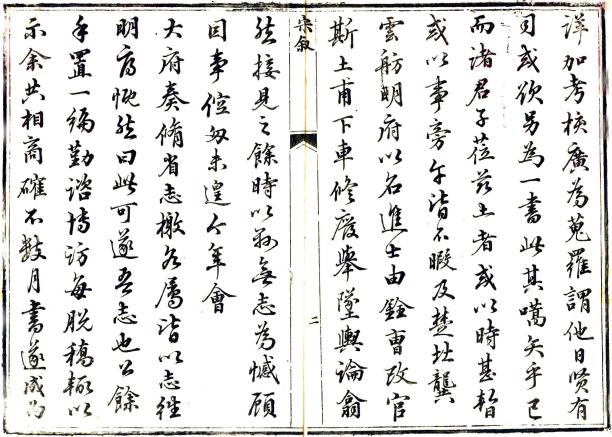 詳加考核廣為蒐羅謂他日賢有
司或欲另為一書此其嚆矢乎已
而諸君子蒞茲土者或以時甚暫
或以事旁午皆不暇及楚北龔
雲舫明府以名進士由銓曹改官
斯土甫下車修廢舉墜輿論翕
叙
二
然接見之餘時以縣無志為憾顧
因事倥匆未遑今年會
大府奏脩省志檄各屬皆以志
明府慨然曰此可遂吾志也公餘
手置一編勤諮博訪每脫稿輒以
示余共相商確不數月書遂成為